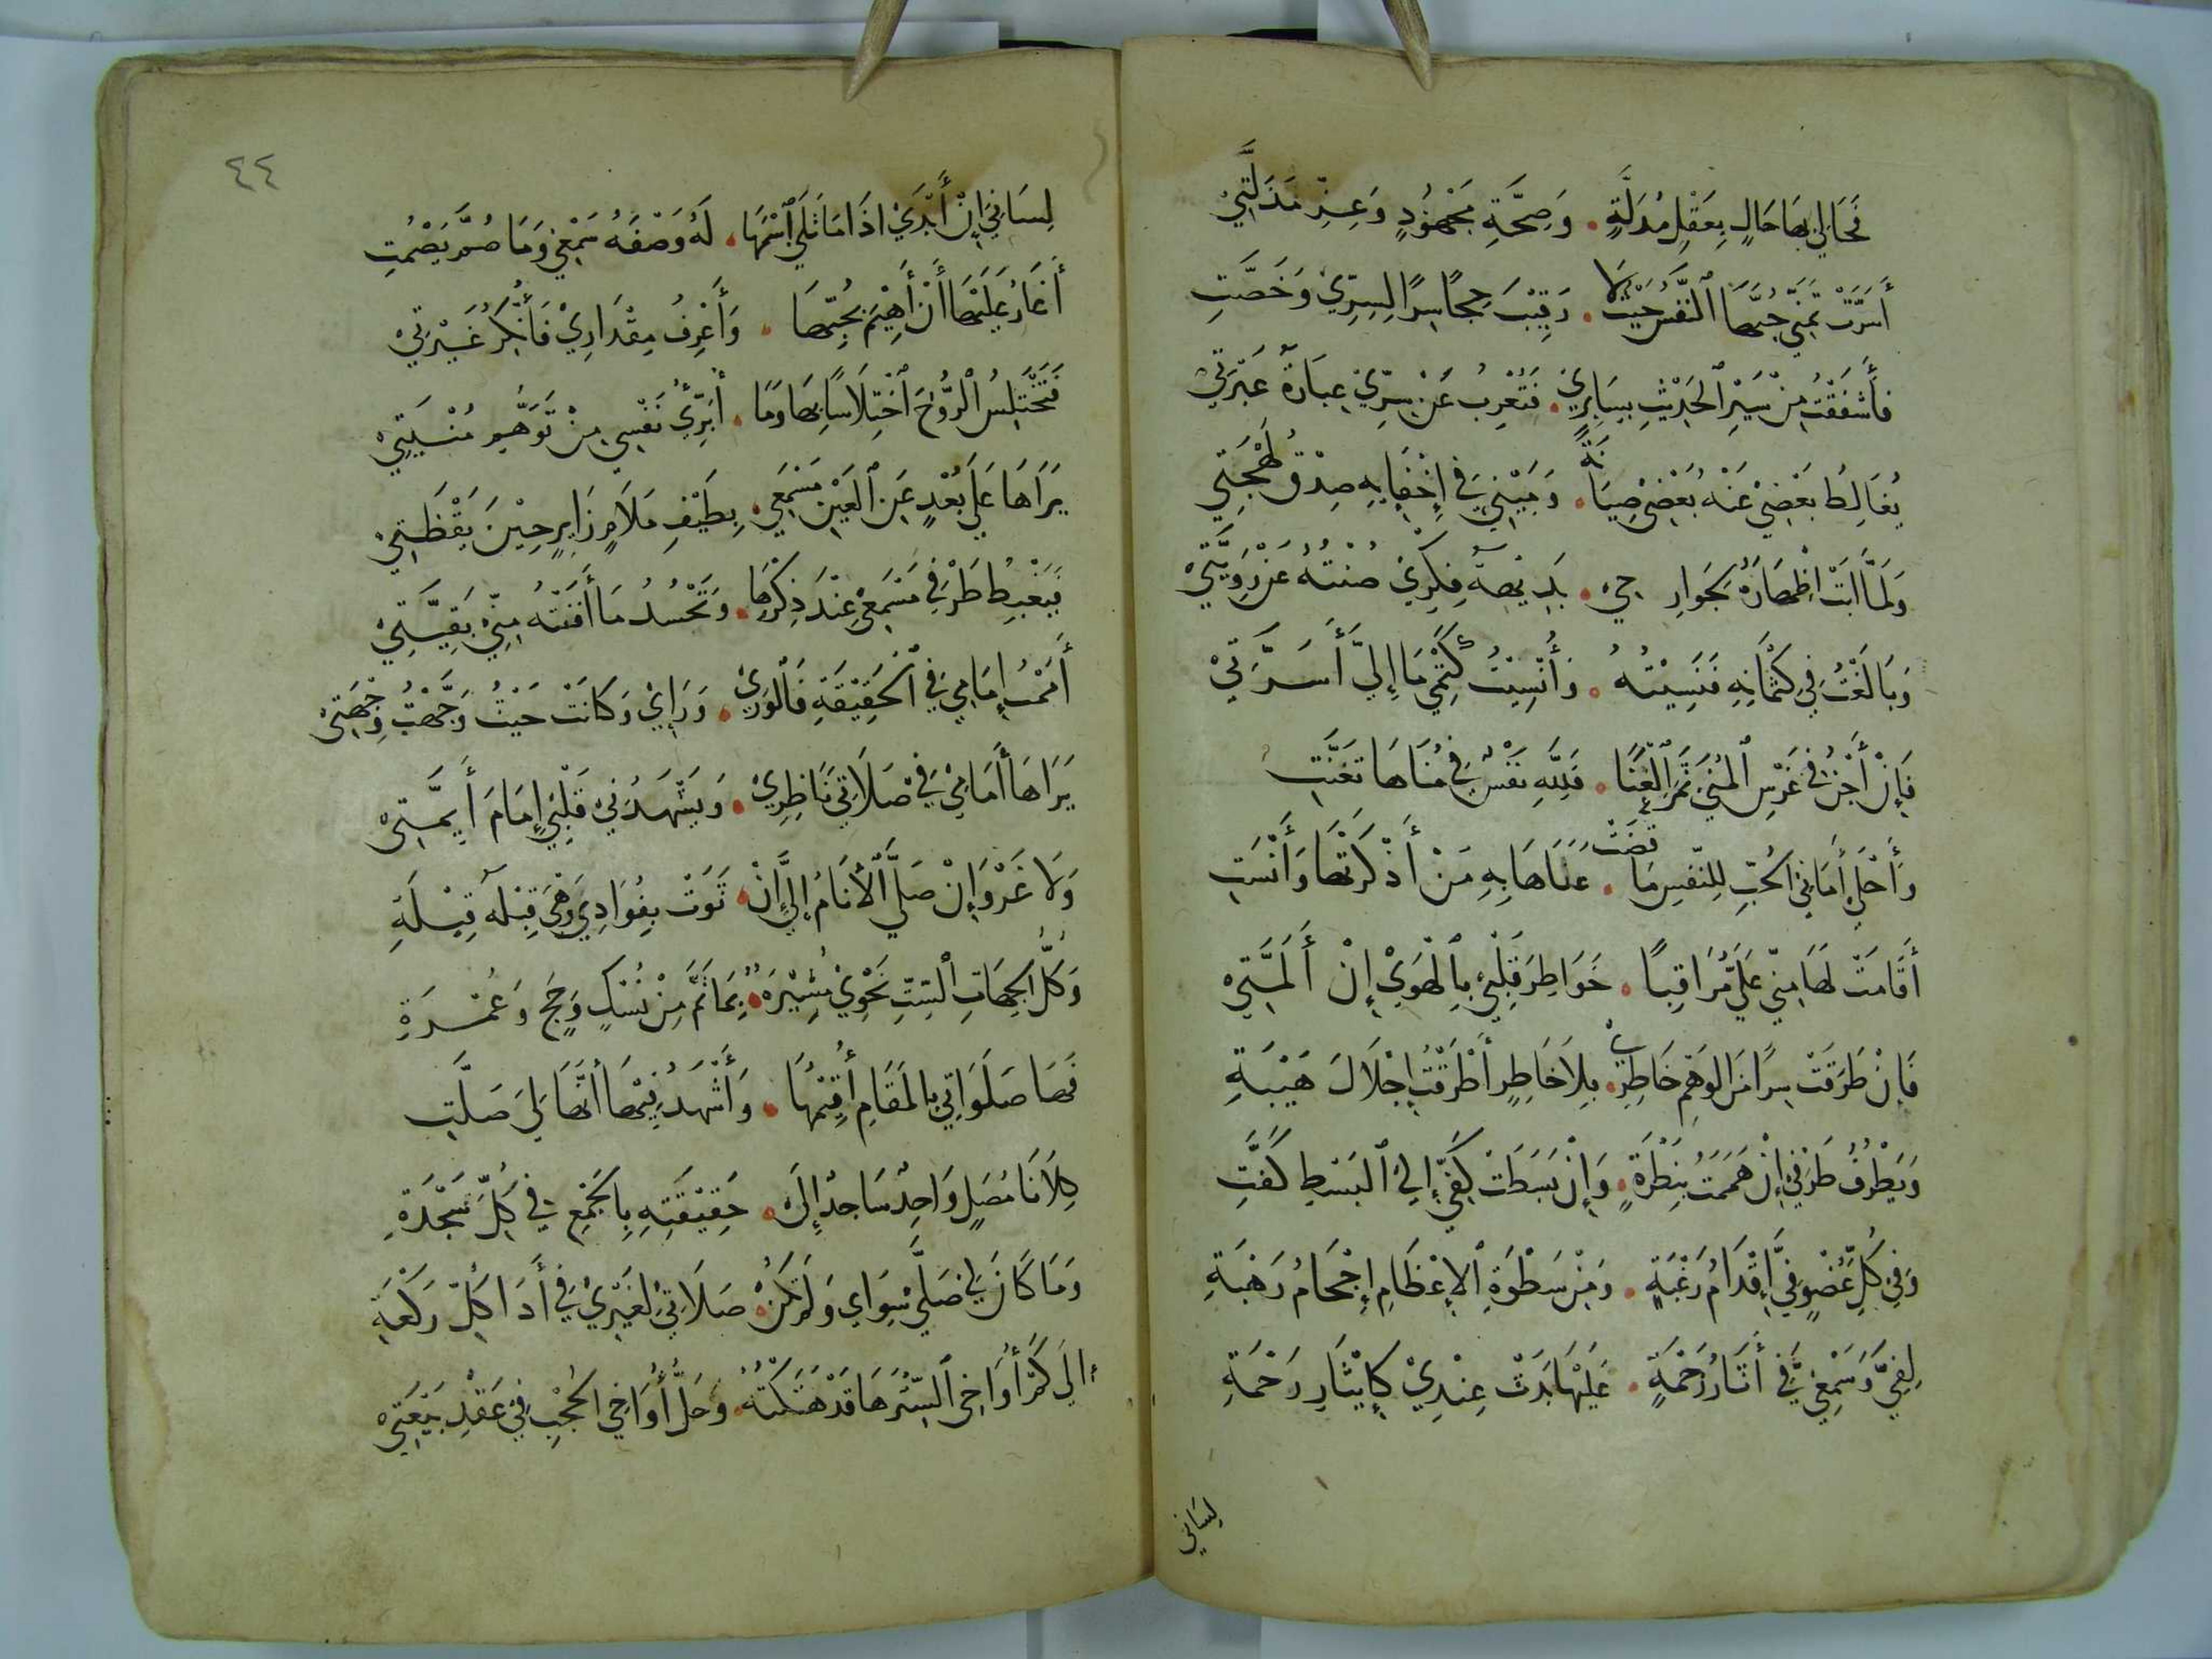 فَحَالِي بِهَا حَالٍ بِعَقْلٍ مُدَلَّةٍ . وَصِحَّةِ مَجْهُودٍ وَعِزِّ مَذَلَّتِيْ
أَسَرَّتْ تَمَنِّيْ حُبِّهَا ٱلنَّفْسُ حَيْثُ لَا . رَقِيْبَ حِجًا سِرًّا لِسِرِّيْ وَخَصَّتِ
فَأَشْفَقْتُ مِنْ سَيْرِ ٱلْحَدِيْثِ بِسَايِرِيْ . فَتُعْرِبُ عَنْ سِرِّيْ عِبَارَةُ عَبْرَتِيْ
يُغَالِطُ بَعْضِيْ عَنْهُ بَعْضِيْ صِيَانَةً . وَمَيْنِيَ فِي إِخْفَايِهِ صِدْقُ لَهْجَتِيْ
وَلَمَّا أَبَتْ اِظْهَارَهُ بِجَوَارِحِيْ . بَدِيْهَةُ فِكْرِيْ صُنْتُهُ عَنْ رَوِيَّتِيْ
وَبَالَغْتُ فِي كِتْمَانِهِ فَنَسِيْتُهُ . وَأُنْسِيْتُ كَتْمِيْ مَا إِلَيَّ أَسَرَّتِيْ
فَإِنْ أَجْنِ فِي غَرْسِ ٱلْمُنَى ثَمَرَ ٱلْعَنَا . فَلِلَّهِ نَفْسٌ فِي مُنَاهَا تَعَنَّتِ
وَأَحْلَى أَمَانِيْ الْحُبِّ لِلنَّفْسِ مَا قَضَتْ . عَنَاهَا بِهِ مَنْ أَذْكَرَتْهَا وَأَنْسَتِ
أَقَامَتْ لَهَا مِنِّيْ عَلَيَّ مُرَاقِبًا . خَوَاطِرَ قَلْبِيْ بِٱلْهَوَى إِنْ أَلَمَّتِيْ
فَإِنْ طَرَقَتْ سِرًّا مِنَ الْوَهْمِ خَاطِرِيْ . بِلَا خَاطِرٍ أَطْرَقْتُ إِجْلَالَ هَيْبَةِ
وَيُطْرَفُ طَرْفِيْ إِنْ هَمَمْتُ بِنَظْرَةٍ . وَإِنْ بَسَطَتْ كَفِّيْ إِلَى ٱلْبَسْطِ كَفَّتِ
وَفِي كُلِّ عُضْوٍ فِيَّ إِقْدَامُ رَغْبَةٍ . وَمِنْ سَطْوَةِ ٱلْإِعْظَامِ إِحْجَامُ رَهْبَةِ
لِفِيَّ وَسَمْعِيْ فِيَّ أَثَارُ زَحْمَةٍ . عَلَيْهَا بَدَتْ عِنْدِيْ كَإِيْثَارِ رَحْمَةِ
لِسَانِي
٤٤
لِسَانِيَ إِنْ أَبْدَى اذَا مَا تَلَى ٱسْمَهَا . لَهُ وَصْفَهُ سَمْعِيْ وَمَا صُمَّ يَصْمُتِ
أَغَارُ عَلَيْهَا أَنْ أَهِيْمَ بِحُبِّهَا . وَأَعْرِفُ مِقْدَارِيْ فَأُنْكِرُ غَيْرَتِيْ
فَتَخْتَلِسُ ٱلرُّوْحَ ٱخْتِلَاسًا بِهَا وَمَا . أُبَرِّئُ نَفْسِي مِنْ تَوَهُّمِ مُنْيَتِيْ
يَرَاهَا عَلَى بُعْدٍ عَنِ ٱلْعَيْنِ مَسْمَعِي . بِطَيْفِ مَلَامٍ زَايِرٍ حِيْنَ يَقْظَتِيْ
فَيَغْبِطُ طَرْفِي مَسْمَعِيْ عِنْدَ ذِكْرِهَا . وَتَحْسُدُ مَا أَفْنَتْهُ مِنِّيْ بَقِيَّتِيْ
أَمَمْتُ إِمَامِيْ فِي ٱلْحَقِيْقَةِ فَٱلْوَرَى . وَرَاِيْ وَكَانَتْ حَيْثُ وَجَّهْتُ وِجْهَتِيْ
يَرَاهَا أَمَامِيْ فِيْ صَلَاتِيَ نَاظِرِيْ . وَيَشْهَدُنِيْ قَلْبِيْ إِمَامَ أَيِمَّتِيْ
وَلَا غَرْوَ إِنْ صَلَّى ٱلْأَنَامُ إِلَيَّ إِنْ . ثَوَتْ بِفُوَادِيْ وَهْيَ قِبْلَةُ قِبْلَةِ
وَكُلُّ الْجِهَاتِ ٱلسِّتِّ نَحْوِيْ مُشِيْرَةٌ . بِمَا ثَمَّ مِنْ نُسْكٍ وَحَجٍّ وَعُمْرَةِ
لَهَا صَلَوَاتِيْ بِالْمَقَامِ أُقِيْمُهَا . وَأَشْهَدُ فِيْهَا أَنَّهَا لِيَ صَلَّتِ
كِلَانَا مُصَلٍّ وَاحِدٌ سَاجِدٌ إِلَى . حَقِيْقَتِهِ بِالْجَمْعِ فِي كُلِّ سَجْدَةِ
وَمَا كَانَ لِيْ صَلَّى سِوَايَ وَلَمْ تَكُنْ . صَلَاتِيْ لِغَيْرِيْ فِي أَدَا كُلِّ رَكْعَةِ
الَى كَمْ أُوَاخِي ٱلسِّتْرَ هَا قَدْ هَتَكْتُهُ . وَحَلُّ أُوَاخِي الْحُجْبِ فِيْ عَقْدِ بَيْعَتِيْ